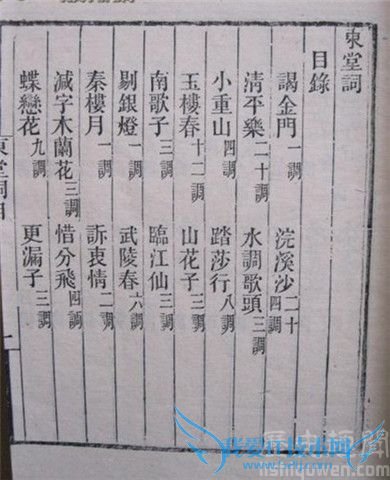 東堂詞
目錄
謁金門一調 浣溪沙二十四調
清平樂二十調 水調歌頭三調
小重山四調 踏莎行八調
玉樓春十二調 山花子三調
南歌子三調 臨江仙三調
剔銀燈一調 武陵春六調
秦樓月一調 訴衷情二調
減字木蘭花三調 惜分飛四調
蝶戀花九調 更漏子三調
東堂詞目 一
lishiquwen.com